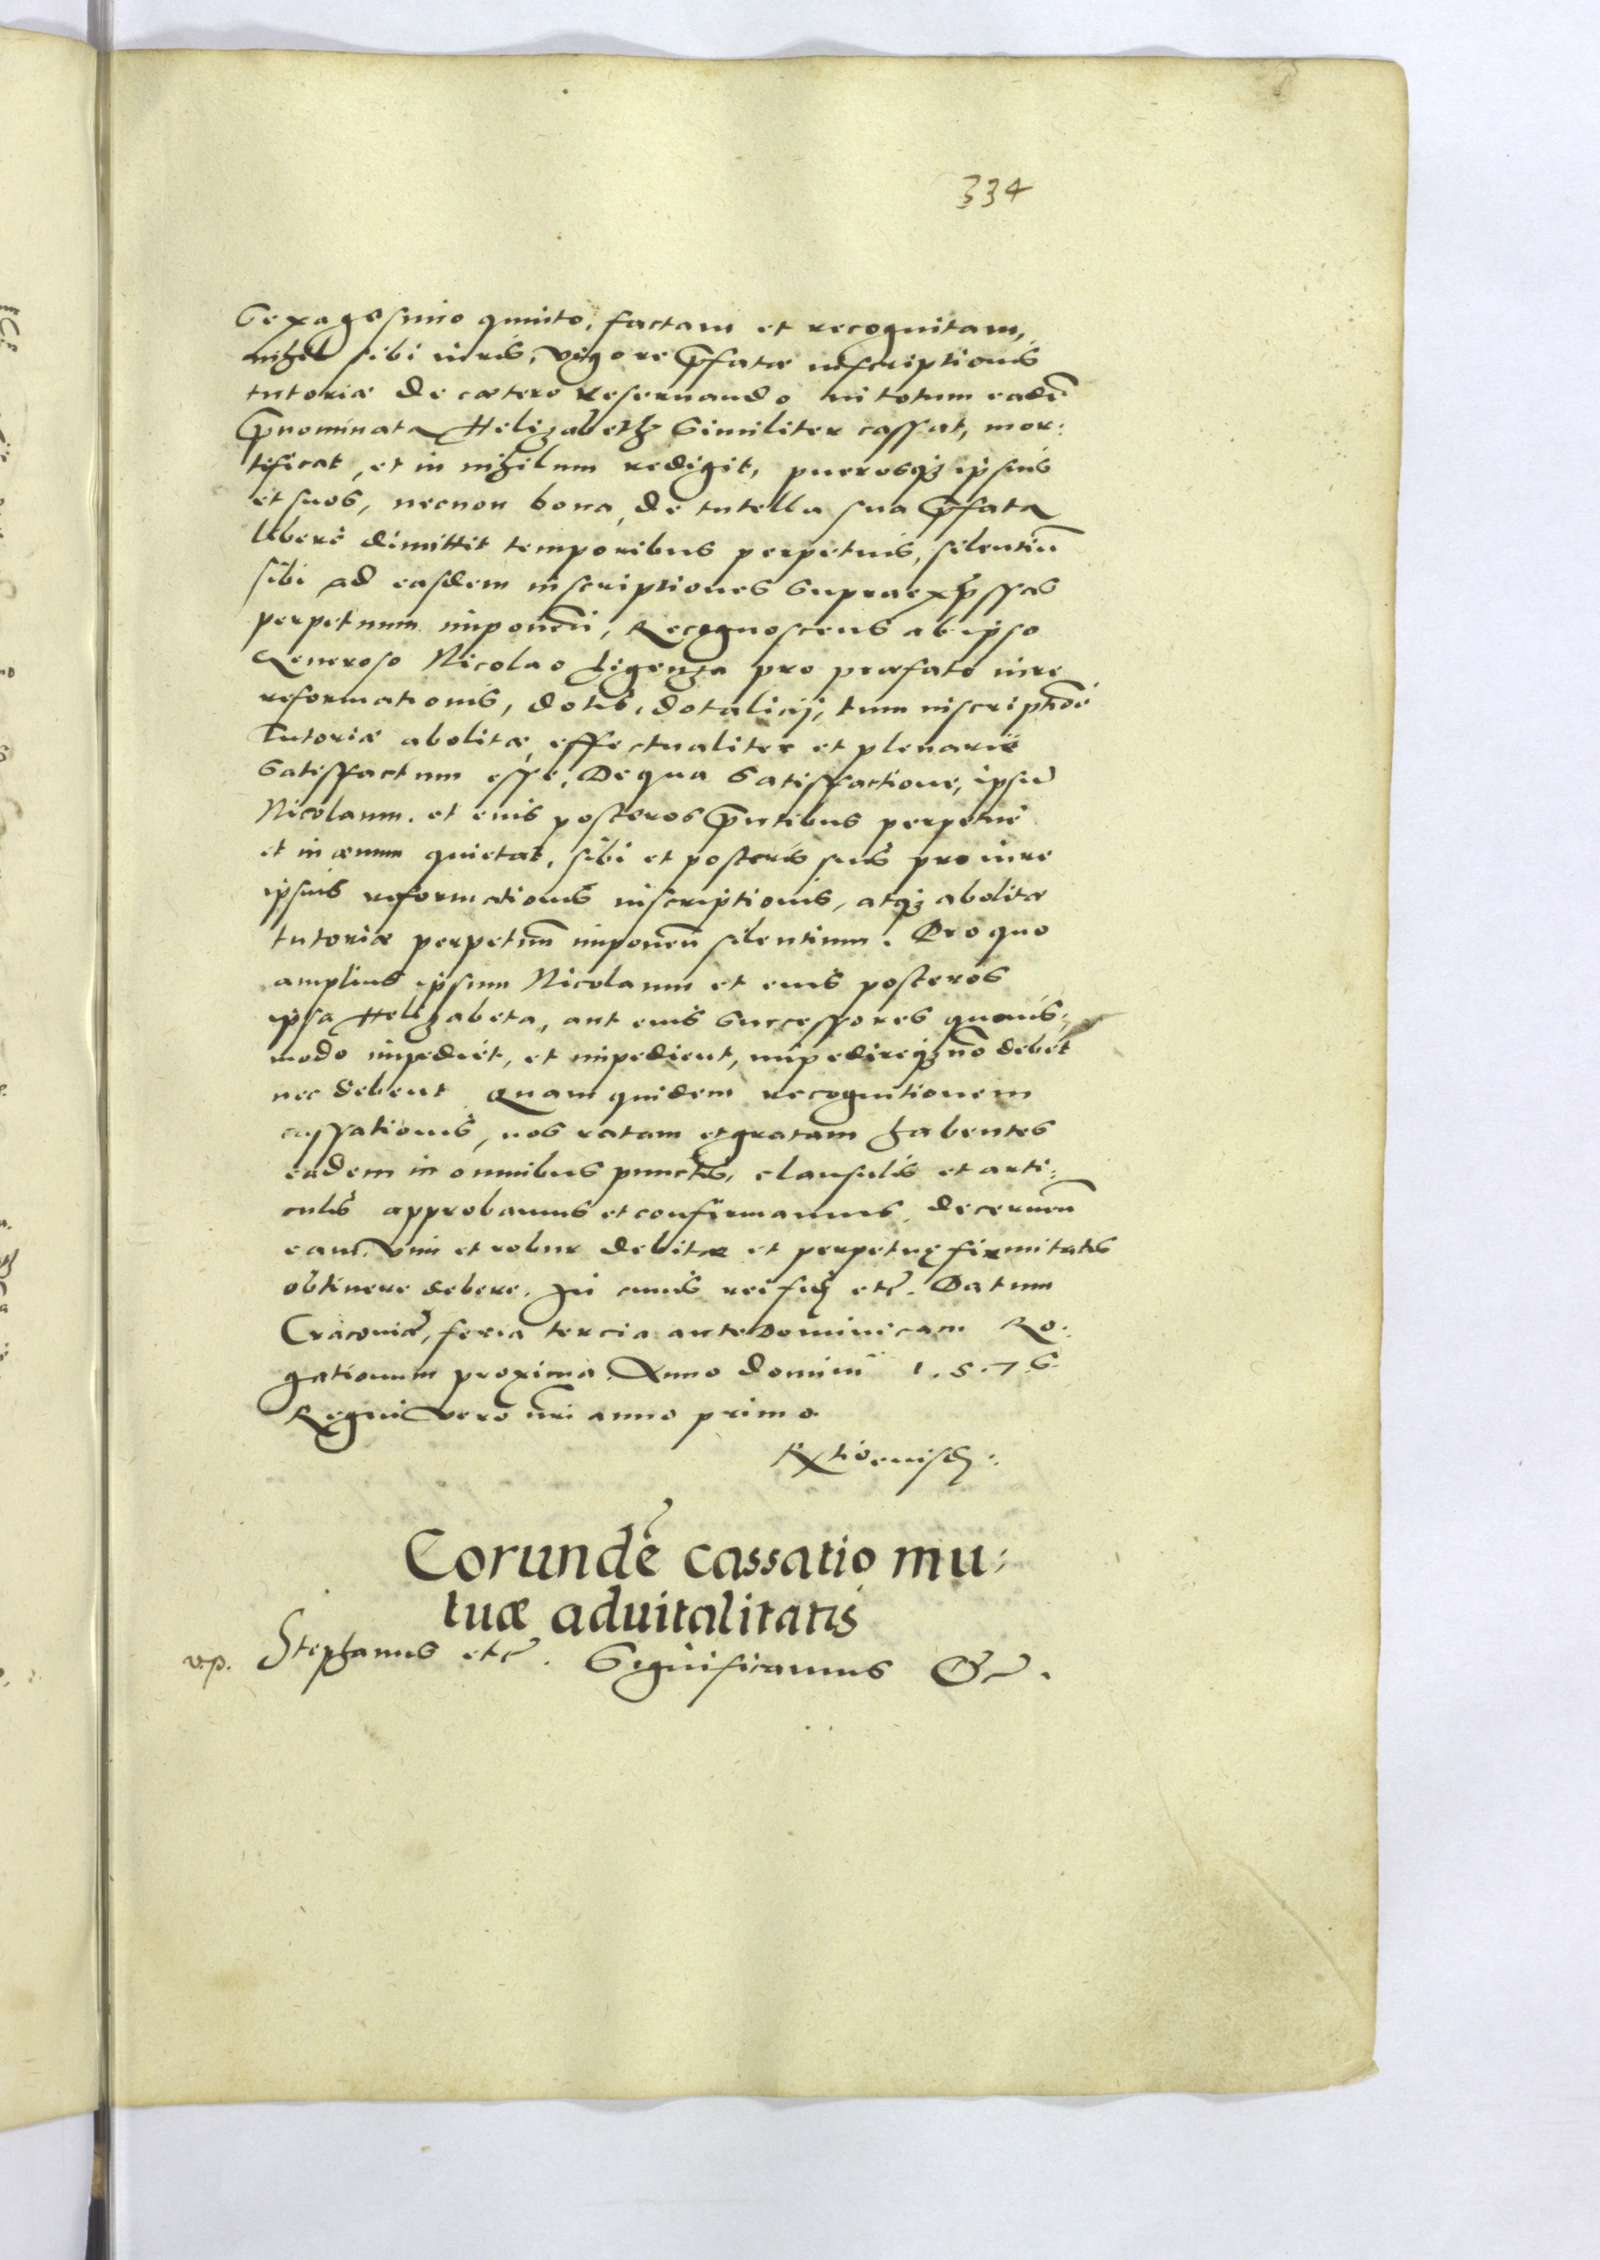 334
Sexagesimo quinto, factam et recognitam,
nihil sibi iuris, vigore p̃fatæ inscriptionis
tutoriæ de cætero reseruando in totum eadẽ
p̃nominata Helizabeth similiter cassat, mor:
tificat, et in nihilum redigit, puerosq3 ipsius
et suos, necnon bona, de tutella sua p̃fata
liberè dimittit temporibus perpetuis, silentiũ
sibi ad easdem inscriptiones supraexp̃ssas
perpetuum imponeñ, Recognoscens ab ipso
Generoso Nicolao Ligenza pro præfato iure
reformationis, dotis, dotalicij, tum inscriptiõe
Tutoriæ abolitæ, effectualiter et plenariè
satisffactum esse, De qua satisffactione, ipsũ
Nicolaum. et eius posteros p̃ntibus perpetuè
et in æuum quietat, sibi et posteris suis pro iure
ipsius reformationis inscriptionis, atq3 abolitæ
tutoriæ perpetuũ imponeñ silentium. Pro quo
amplius ipsum Nicolaum et eius posteros
ipsa Helizabeta, aut eius successores quouis:
modo impediet, et impedient, impedireq3 nõ debet
nec debent Quam quidem recognitionem
cassationis, nos ratam et gratam habentes
eadem in omnibus punctis, clausulis et arti:
culis approbamus et confirmamus, decerneñ
eam, vim et robur debitæ et perpetuę firmitatis
obtinere debere. In cuius rei fid etc. Datum
Cracouiæ, feria tercia ante Dominicam Ro:
gationum proxima Anno domini 1.5.7.6.
Regni vero nri anno primo.
Eorundẽ cassatio mu:
tuæ aduitalitatis
v.p. Stephanus etc. Significamus &c.